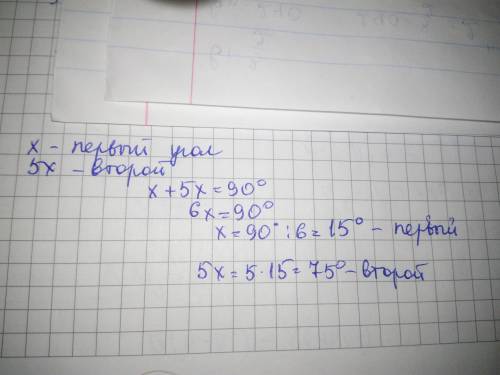 x - первый угол
5x - второй
x + 5x = 90°
6x = 90°
x = 90° : 6 = 15° - первый
5x = 5 · 15 = 75° - второй